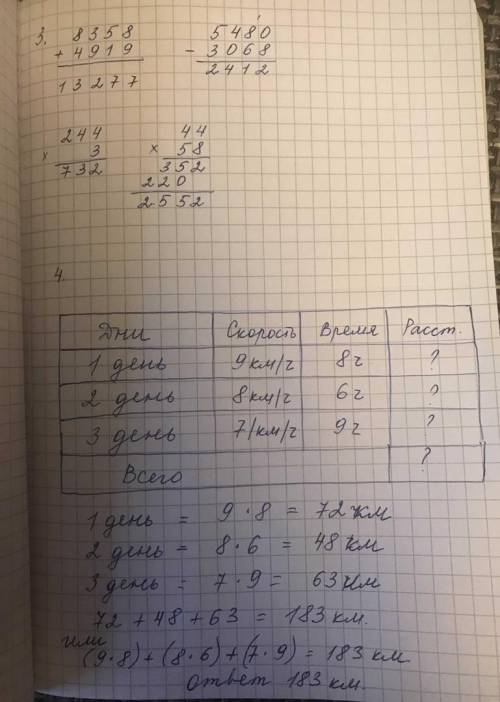 3. 8358
+ 4919
13277
5480
- 3068
2412
244
x 3
732
44
x 58
352
220
2552
4.
Дни Скорость Время Расст.
1 день 9км/ч 8ч ?
2 день 8км/ч 6ч ?
3 день 7/км/ч 9ч ?
Всего ?
1 день = 9 · 8 = 72 км
2 день = 8 · 6 = 48 км
3 день = 7 · 9 = 63 км
72 + 48 + 63 = 183 км.
или
(9·8)+(8·6)+(7·9) = 183 км
ответ 183 км.